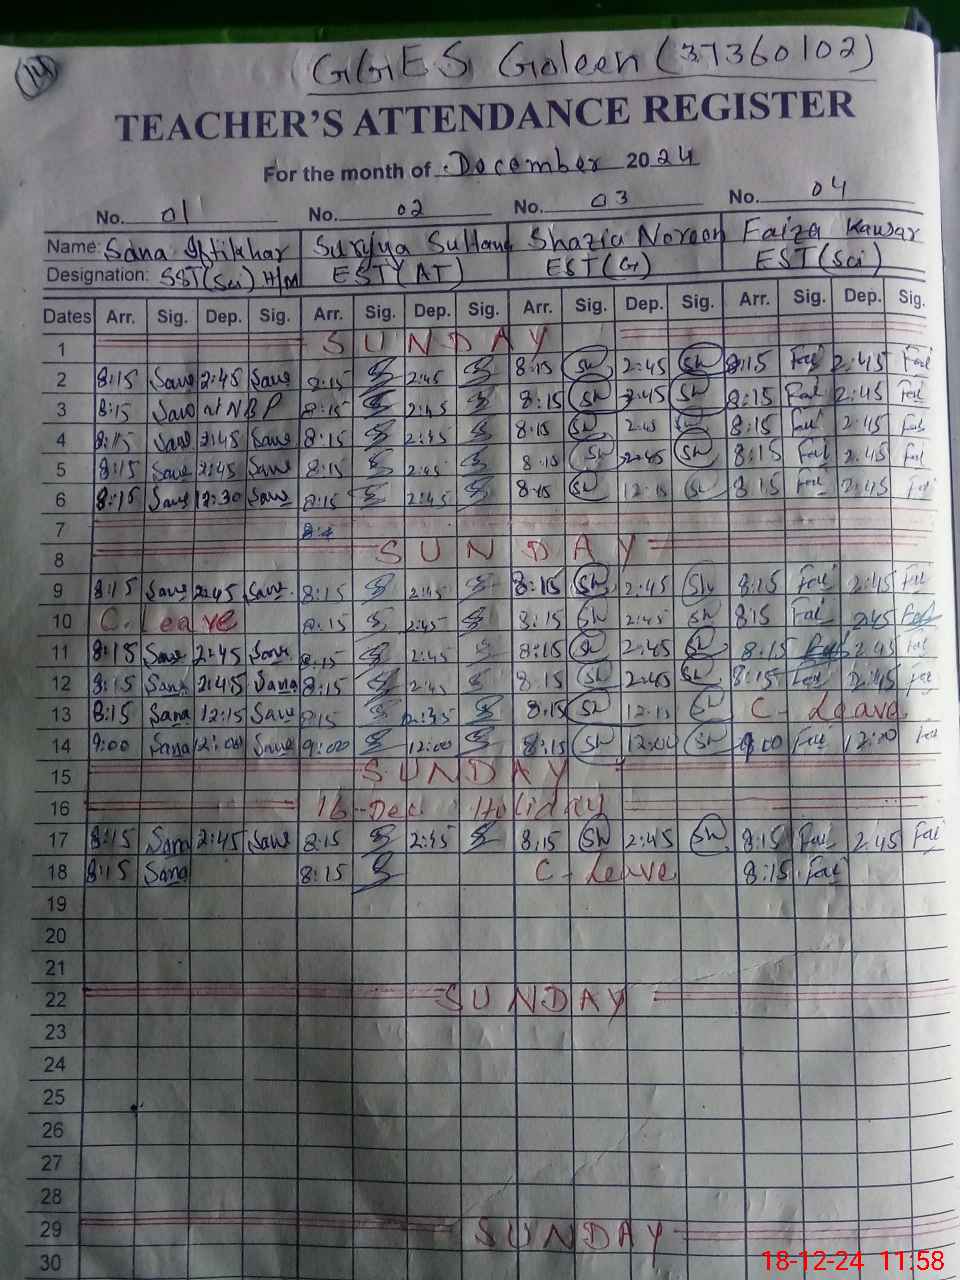 14
GGES Goleen (37360102)
TEACHER'S ATTENDANCE REGISTER
For the month of December 2024
No. 01 No. 02 No. 03 No. 04
Name: Sana Iftikhar Suryya Sultana Shazia Noreen Faiza Kawsar
Designation: SST (Sci) H/M EST (AT) EST (G) EST (Sci)
Dates Arr. Sig. Dep. Sig. Arr. Sig. Dep. Sig. Arr. Sig. Dep. Sig. Arr. Sig. Dep. Sig.
1 SUNDAY
2 8:15 Sana 2:45 Sana 8:15 2:45 8:15 Sh 2:45 Sh 8:15 Fai 2:45 Fai
3 8:15 Sana at NBP 8:15 2:45 8:15 Sh 2:45 Sh 8:15 Fai 2:45 Fai
4 8:15 Sana 2:45 Sana 8:15 2:45 8:15 Sh 2:45 Sh 8:15 Fai 2:45 Fai
5 8:15 Sana 2:45 Sana 8:15 2:45 8:15 Sh 2:45 Sh 8:15 Fai 2:45 Fai
6 8:15 Sana 12:30 Sana 8:15 2:45 8:15 Sh 12:15 Sh 8:15 Fai 2:45 Fai
7
8 SUNDAY
9 8:15 Sana 2:45 Sana 8:15 2:45 8:15 Sh 2:45 Sh 8:15 Fai 2:45 Fai
10 C. Leave 8:15 2:45 8:15 Sh 2:45 Sh 8:15 Fai 2:45 Fai
11 8:15 Sana 2:45 Sana 8:15 2:45 8:15 Sh 2:45 Sh 8:15 Fai 2:45 Fai
12 8:15 Sana 2:45 Sana 8:15 2:45 8:15 Sh 2:45 Sh 8:15 Fai 2:45 Fai
13 8:15 Sana 12:15 Sana 8:15 8:15 Sh 12:15 Sh C- Leave
14 9:00 Sana 12:00 Sana 9:00 12:00 8:15 Sh 12:00 Sh 9:00 Fai 12:00 Fai
15 SUNDAY
16 16-Dec Holiday
17 8:15 Sana 2:45 Sana 8:15 2:45 8:15 Sh 2:45 Sh 8:15 Fai 2:45 Fai
18 8:15 Sana 8:15 C- Leave 8:15 Fai
19
20
21
22 SUNDAY
23
24
25
26
27
28
29 SUNDAY
30
18-12-24 11:58